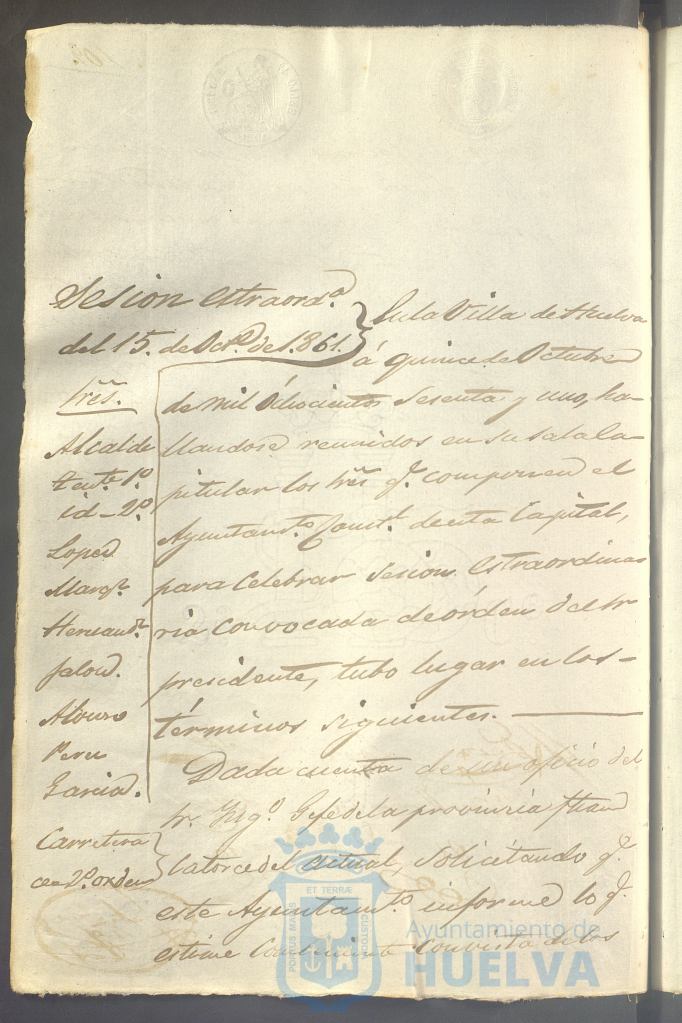 Sesion estraord.ª
del 15. de Oct.e de 1.861.
En la Villa de Huelva
á quince de Octubre
de mil Ochocientos sesenta y uno, ha-
llandose reunidos en su sala Ca-
pitular los Sres q.e componen el
Ayuntam.to Const.l de esta Capital,
para celebrar sesion estraordina-
ria convocada de órden del Sr
presidente, tubo lugar en los
términos siguientes.
Sres.
Alcalde
Tente. 1º
id - 2º
Lopez
Marq.z
Hernand.z
Jalon.
Alonso
Garcia.
Carretera
de 2º orden
Dada cuenta de un oficio del
Sr. Ing.º Gefe de la provincia fha
Catorce del actual, solicitando q.e
este Ayuntam.to informe lo q.e
estime conveniente con vista de los
ET TERRÆ
PORTUS MARIS
CUSTODIA
Ayuntamiento de
HUELVA